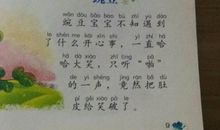 wān dòu bǎo bao bù zhī yù dào
豌豆宝宝不知遇到
le shén me kāi xīn shì yì zhí hā
了什么开心事，一直哈
hā dà xiào zhǐ tīng pā
哈大笑，只听“啪”
de yì shēng jìng rán bǎ dù
的一声，竟然把肚
pí gěi xiào pò le
皮给笑破了。
9